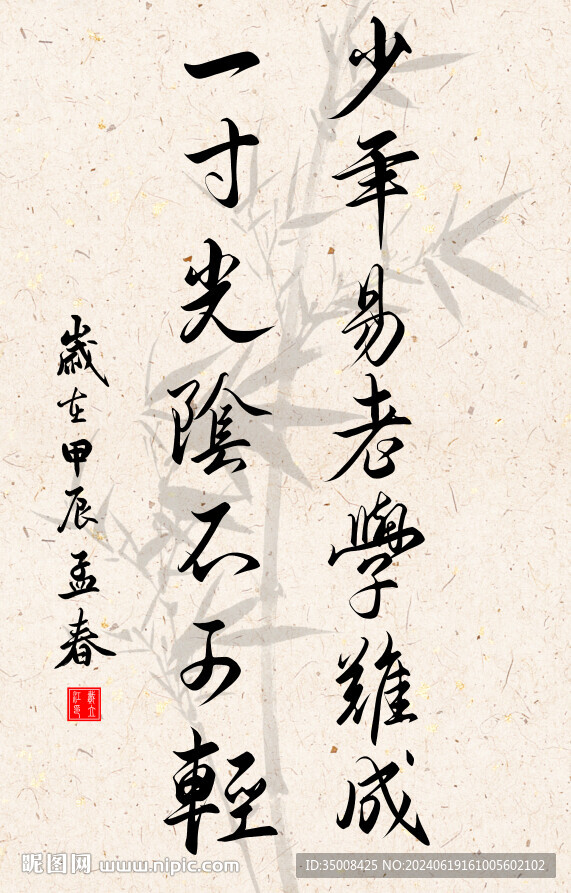 少年易老學難成
一寸光陰不可輕
歲在甲辰孟春
昵图网 www.nipic.com
ID:35008425 NO:20240619161005602102